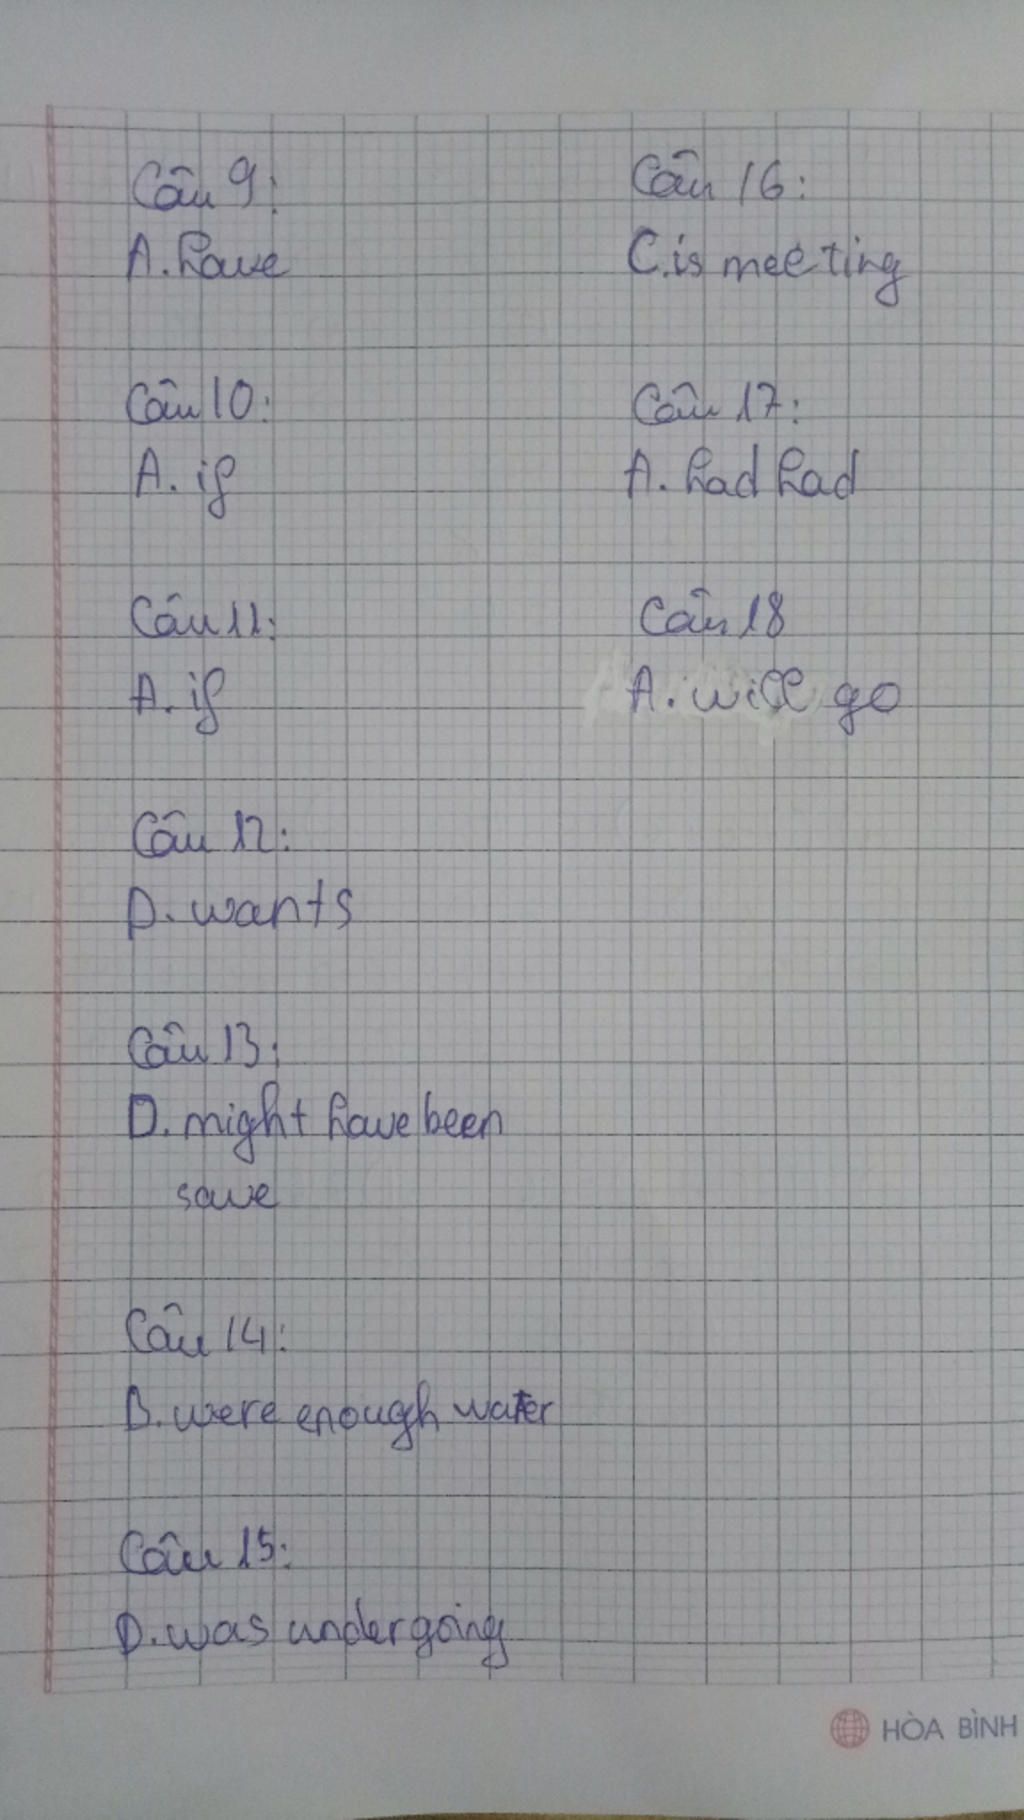 Câu 9:
A. have
Câu 10:
A. if
Câu 11:
A. if
Câu 12:
D. wants
Câu 13:
D. might have been
save
Câu 14:
B. were enough water
Câu 15:
D. was undergoing
Câu 16:
C. is meeting
Câu 17:
A. had had
Câu 18
A. will go
HÒA BÌNH